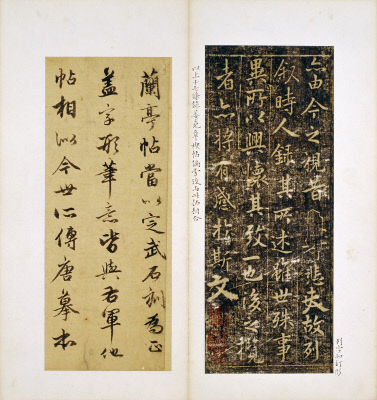 由今之視昔悲夫故列
敘時人錄其所述雖世殊事
異所以興懷其致一也後之攬
者亦將有感於斯文
蘭亭帖當以定武石刻為正
蓋字形筆意皆與右軍他
帖相似今世所傳唐摹本